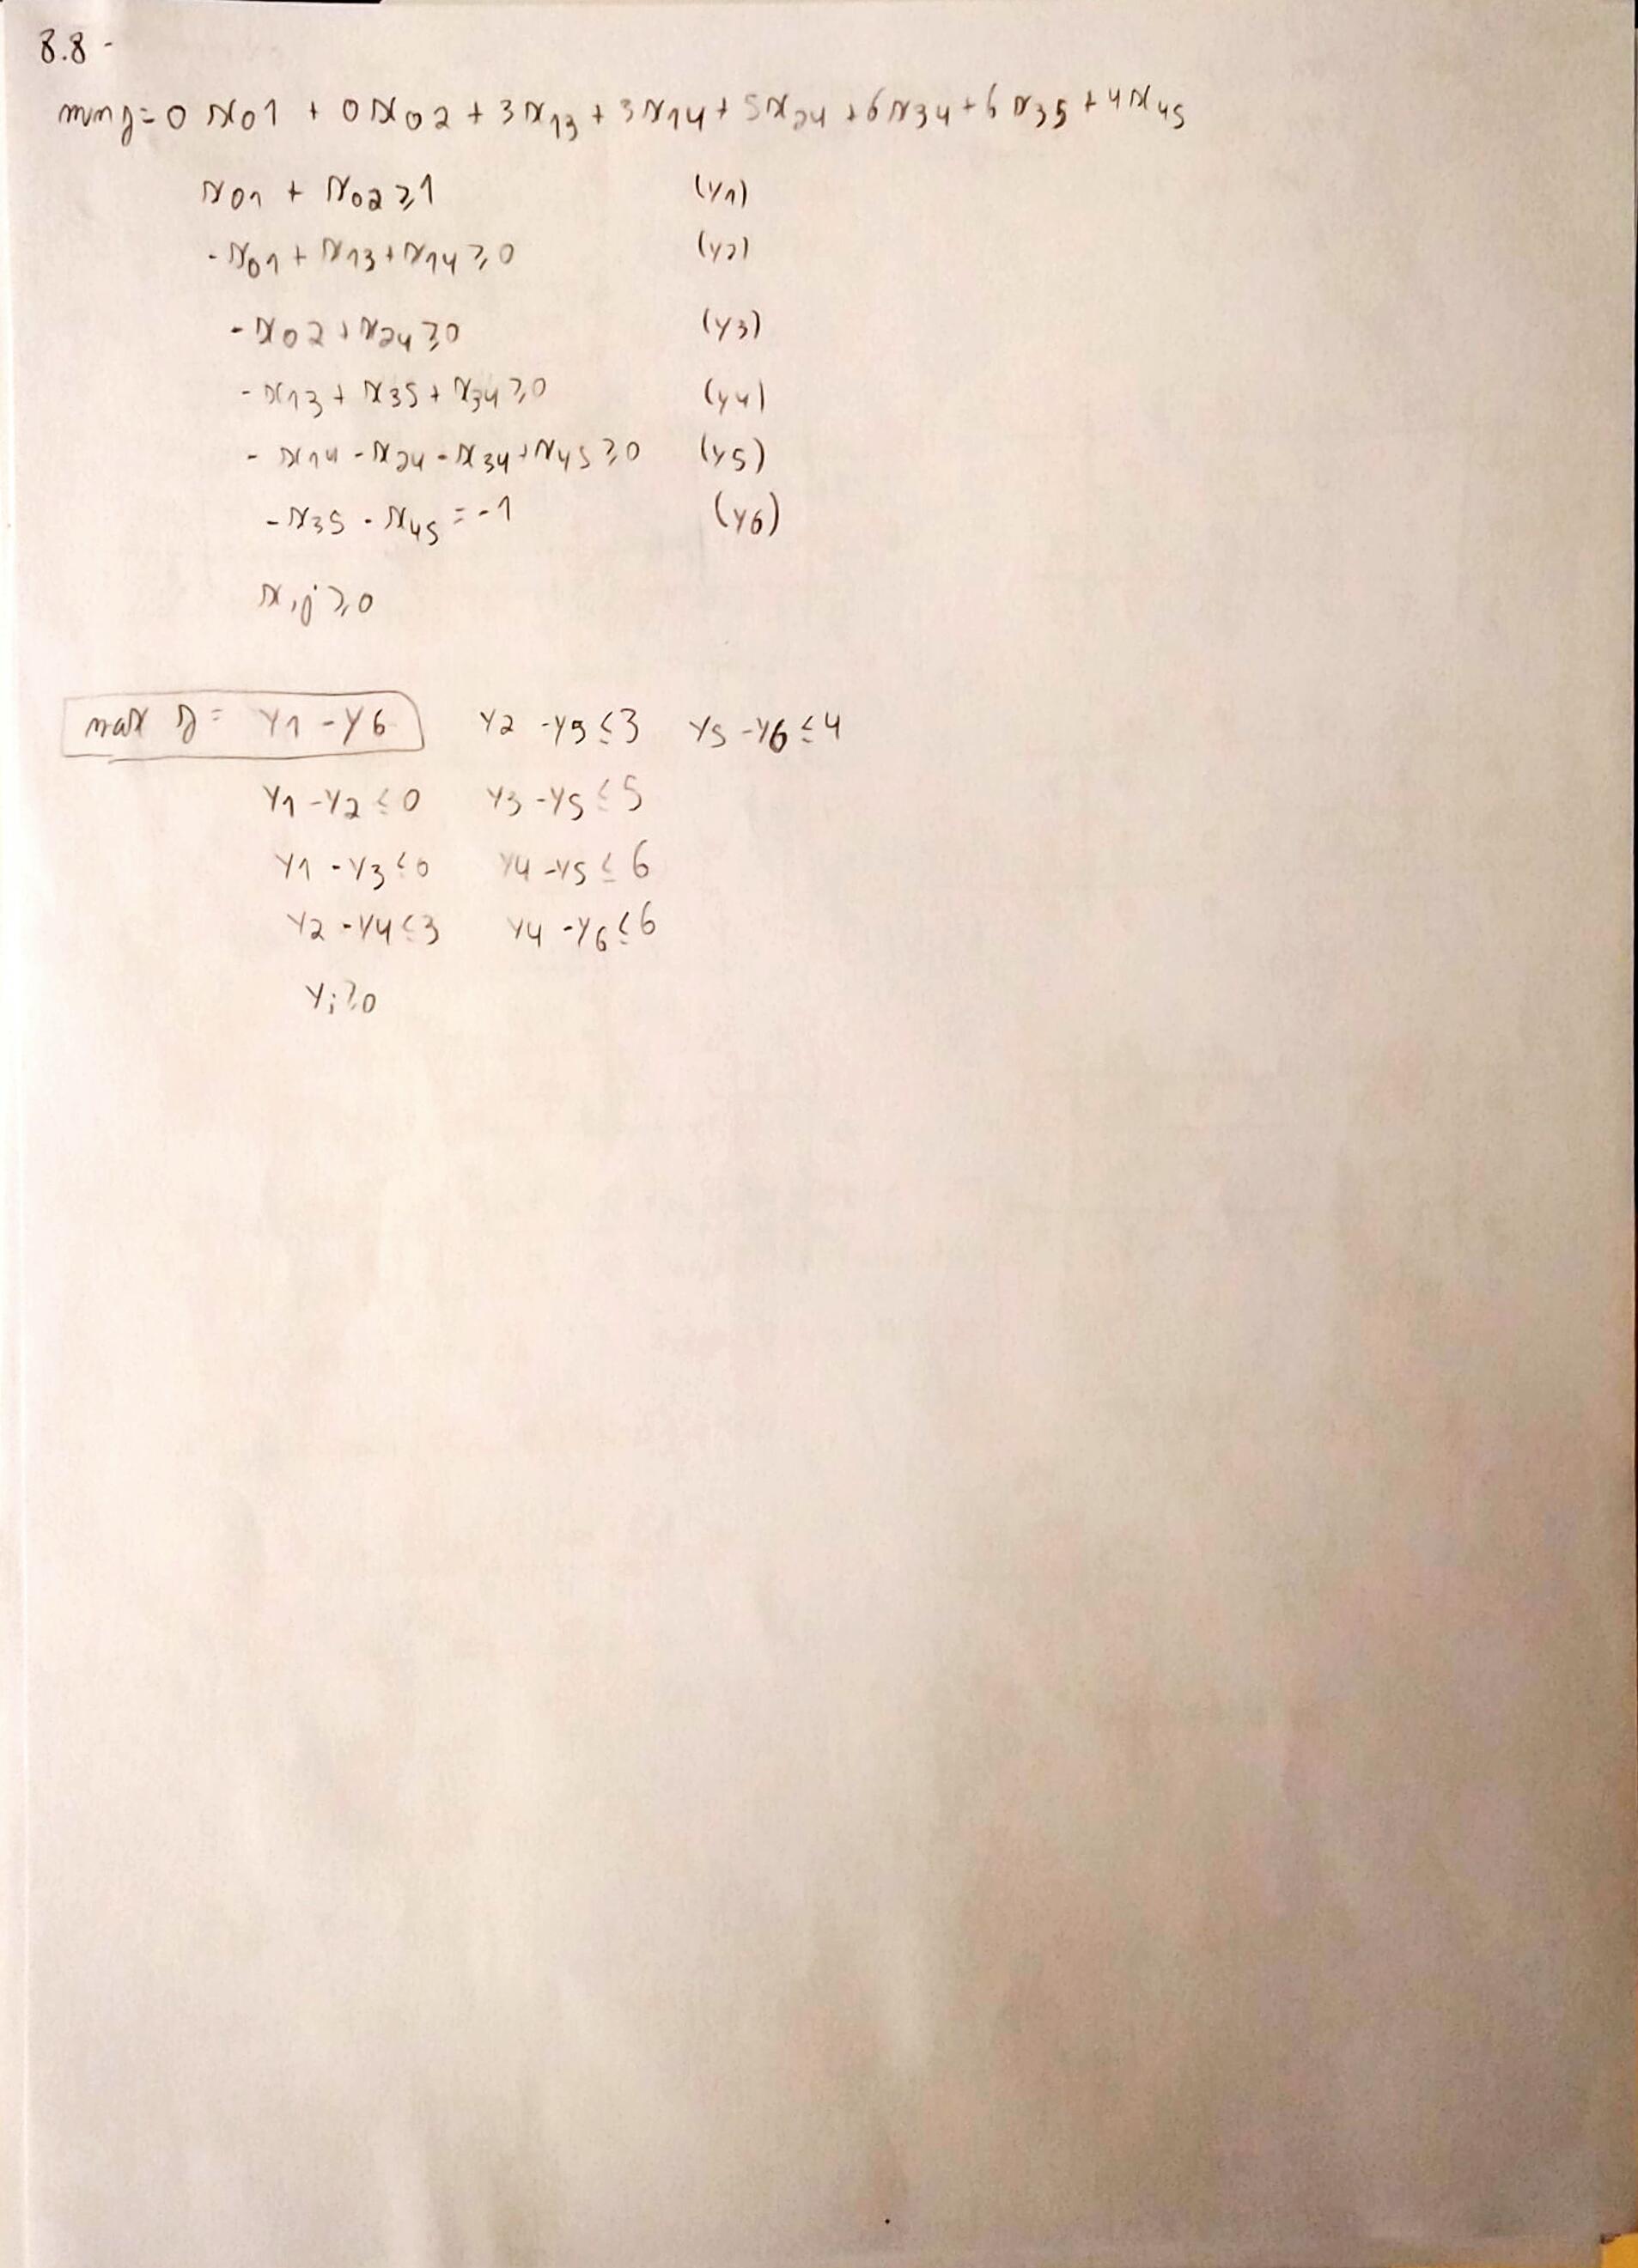 8.8-
min z = 0 x01 + 0 x02 + 3 x13 + 3 x14 + 5 x24 + 6 x34 + 6 x35 + 4 x45
x01 + x02 ≥ 1 (y1)
- x01 + x13 + x14 ≥ 0 (y2)
- x02 + x24 ≥ 0 (y3)
- x13 + x35 + x34 ≥ 0 (y4)
- x14 - x24 - x34 + x45 ≥ 0 (y5)
- x35 - x45 = -1 (y6)
xij ≥ 0
max z = y1 - y6 y2 - y5 ≤ 3 y5 - y6 ≤ 4
y1 - y2 ≤ 0 y3 - y5 ≤ 5
y1 - y3 ≤ 0 y4 - y5 ≤ 6
y2 - y4 ≤ 3 y4 - y6 ≤ 6
yi ≥ 0